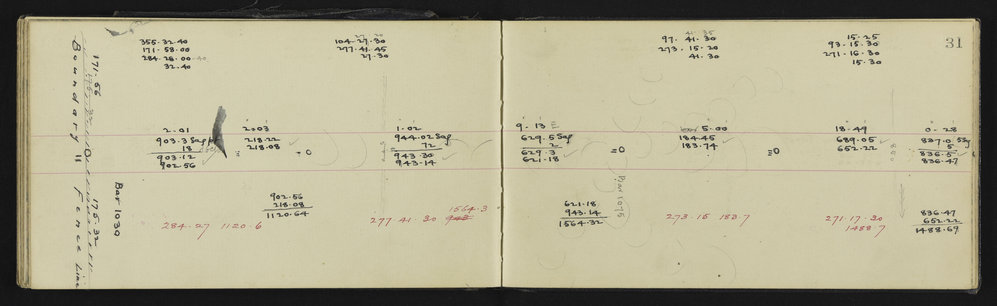 171.56
Boundary Fence Line
175.32
Bar 1030
355.32.40
171.58.00
284.28.00
32.40
2.01
903.3 Sag
18
903.12
902.56
2.03
218.22
218.08
= 0
902.56
218.08
1120.64
284.27 1120.6
104.27.30
277.41.45
27.30
1.02
944.02 Sag
72
943.30
943.14
277.41.30
1564.3
31
97.41.30
273.15.20
41.30
9.13
629.5 Sag
2
629.3
621.18
= 0
Bar 1075
621.18
943.14
1564.32
5.00
184.45
183.74
= 0
273.15 183.7
15.25
93.15.30
271.16.30
15.30
18.49
689.05
652.22
0.28
837.0 Sag
5
836.5
836.47
271.17.30
1488.7
836.47
652.22
1488.69